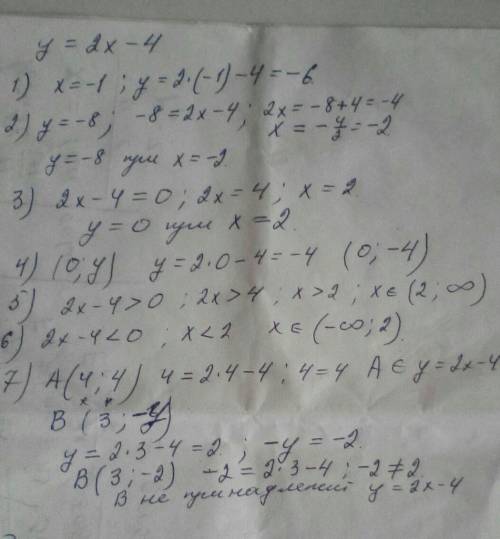 y = 2x - 4
1) x = -1 ; y = 2·(-1) - 4 = -6
2) y = -8 ; -8 = 2x - 4 ; 2x = -8 + 4 = -4
x = -4/2 = -2
y = -8 при x = -2
3) 2x - 4 = 0 ; 2x = 4 ; x = 2
y = 0 при x = 2.
4) (0; y) y = 2·0 - 4 = -4 (0; -4)
5) 2x - 4 > 0 ; 2x > 4 ; x > 2 ; x ∈ (2; ∞)
6) 2x - 4 < 0 ; x < 2 x ∈ (-∞; 2)
7) A(4; 4) 4 = 2·4 - 4 ; 4 = 4 A ∈ y = 2x - 4
B (3; -y)
y = 2·3 - 4 = 2 ; -y = -2.
B(3; -2) -2 = 2·3 - 4 ; -2 ≠ 2
B не принадлежит y = 2x - 4